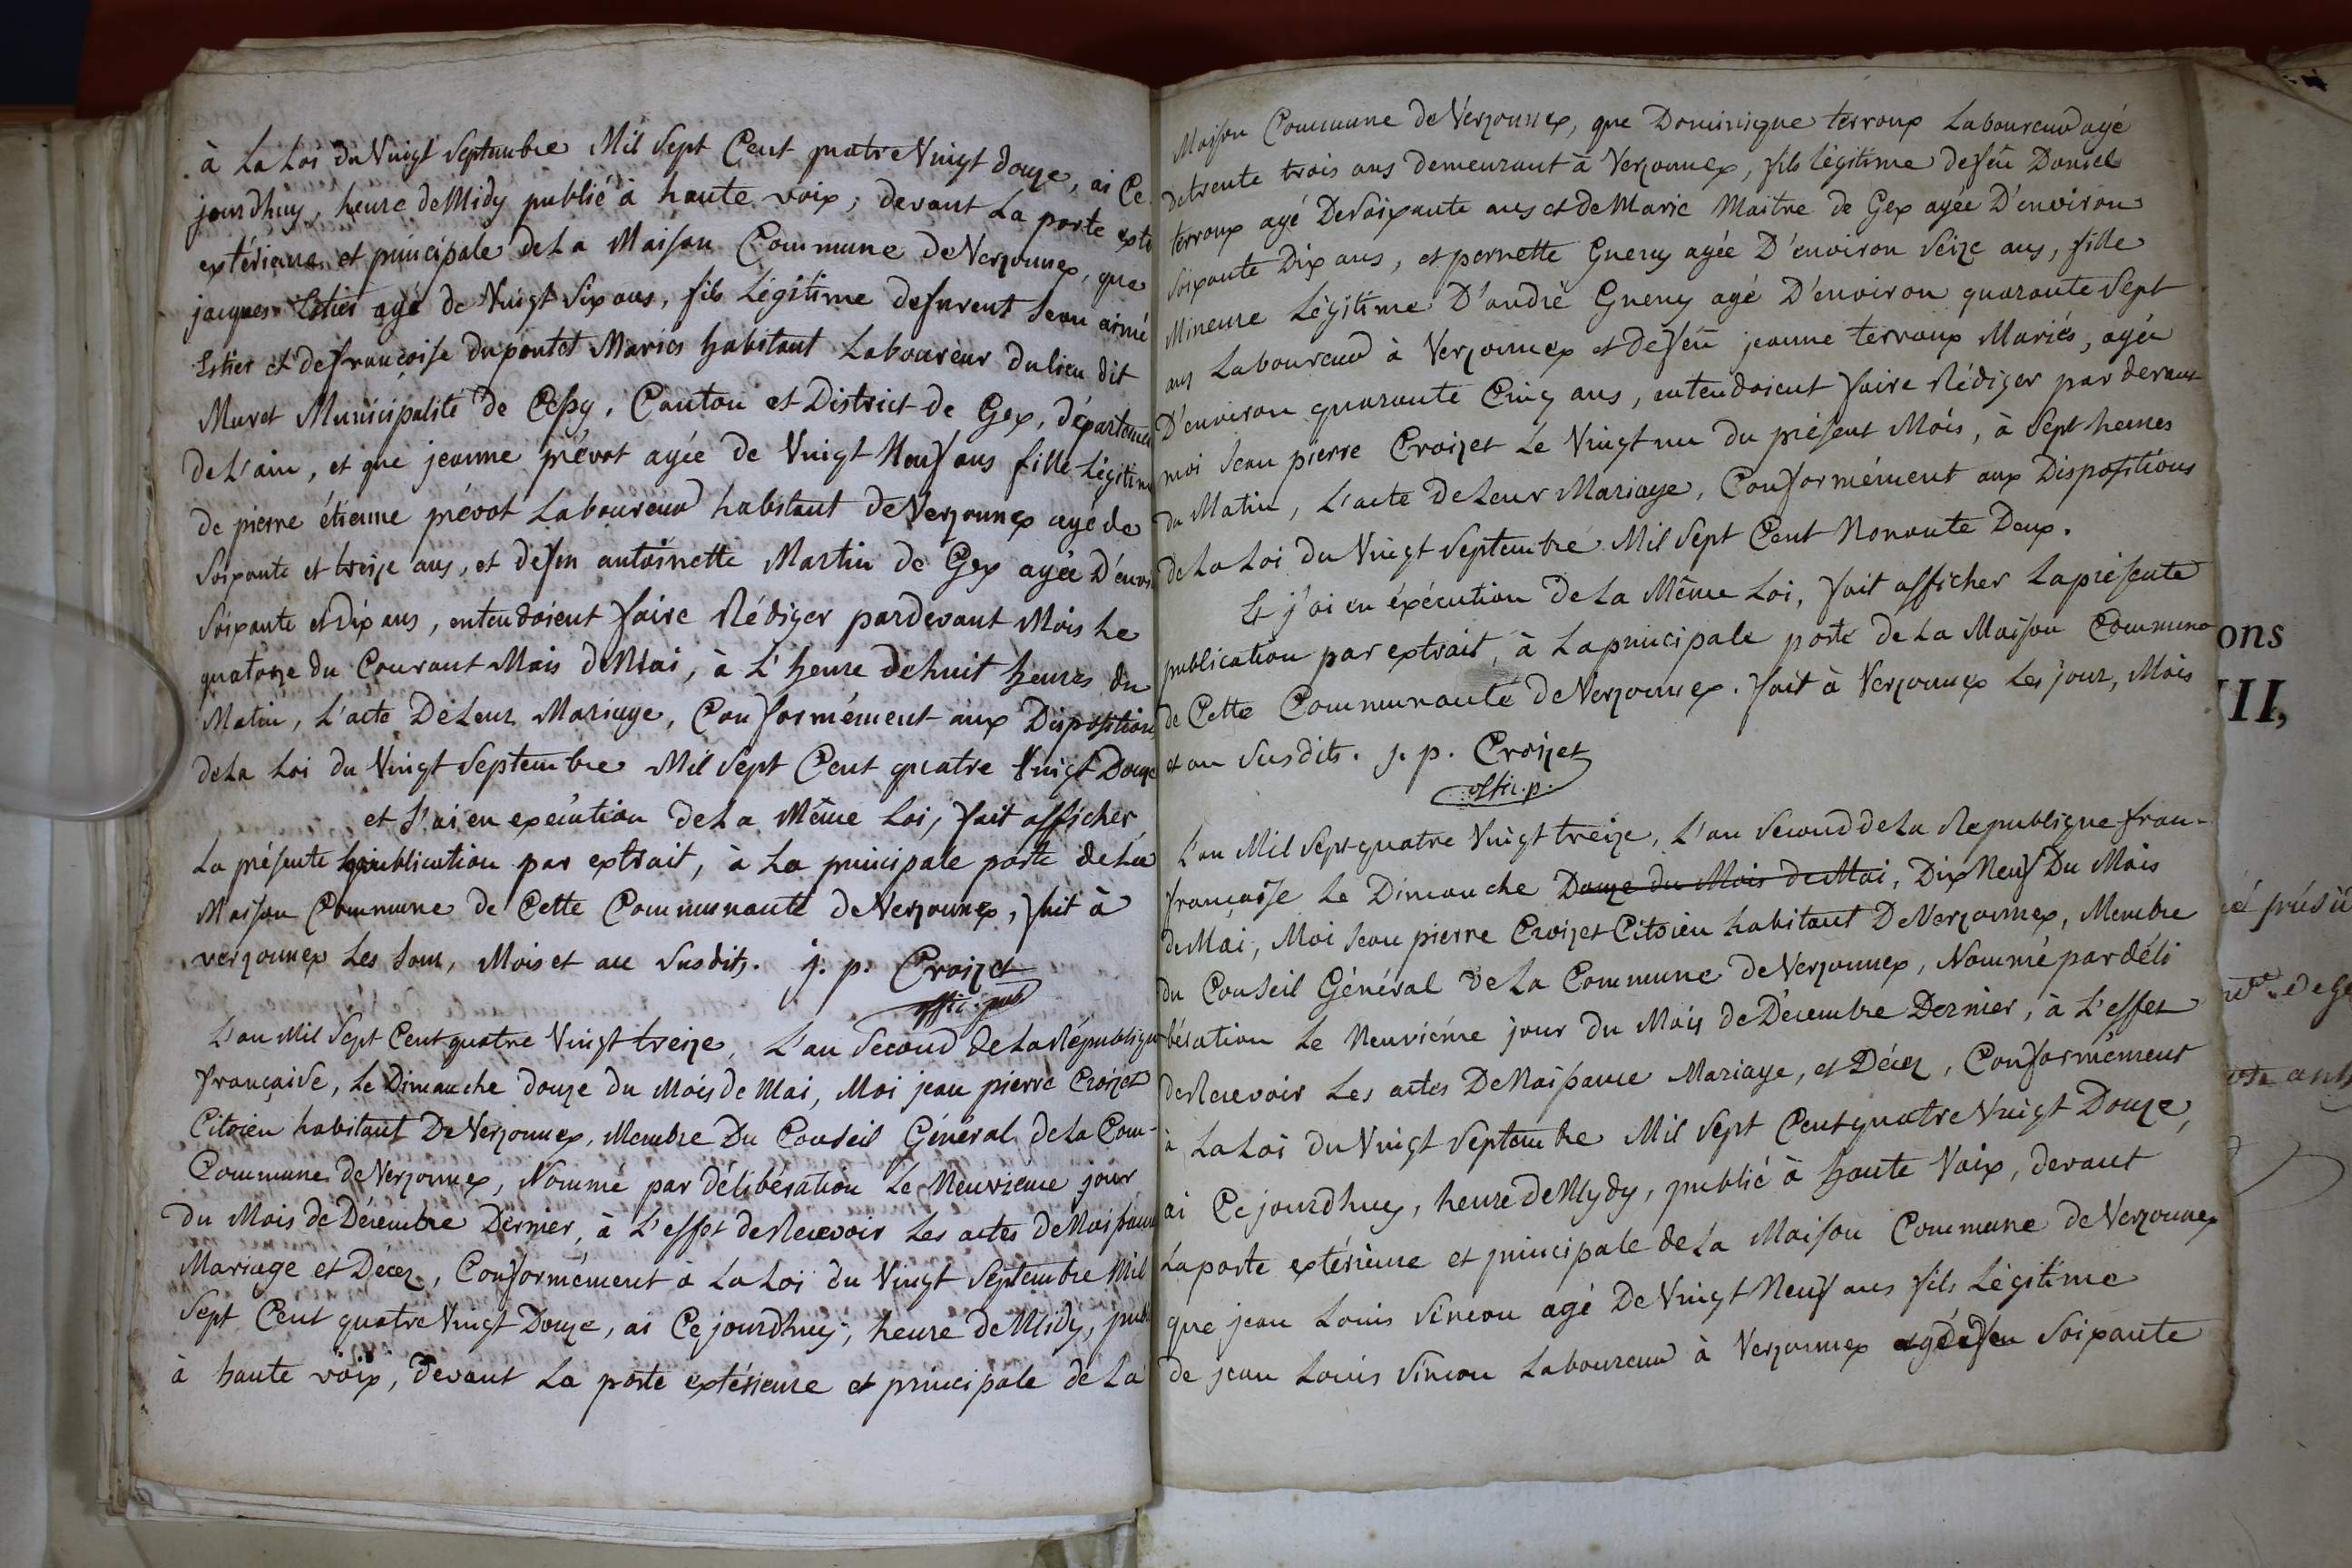 à La Loi du Vuigt Septembre Mil Sept Cent quatre Vuigt douze, ai Ce
jourdhuy, heure de Midy publié à haute voix, devant La porte exté
extérieure et principale de La Maison Commune de Verzonnex, que
jacques Estier agé de Vuigt Six ans, fils Légitime defurent Jean aimé
Estier et defrancoise dupontet Mariés habitant Laboureur du lieu dit
Muret Municipalité de Cessy, Canton et District de Gex, départemen
de L'ain, et que jeanne prévot agée de Vuigt Neuf ans fille Légitime
de pierre étienne prévot Laboureur habitant de Verzonnex agé de
Soixante et treize ans, et defeu antoinette Martin de Gex agée D'envi
Soixante et Dix ans, entendoient faire Rédiger pardevant Moi Le
quatorze du Courant Mois de Mai, à L'heure de huit heures du
Matin, L'acte De Leur Mariage, Conformément aux Disposition
de La Loi du Vingt Septembre Mil Sept Cent quatre Vuigt Douze
et J'ai en execution de La Même Loi, fait afficher
La présente publication par extrait, à La principale porte de La
Maison Commune de Cette Communauté de Verzonnex, fait à
verzonnex Les Jour, Mois et an Susdits. j. p. Croizet
offic. pub
L'an Mil Sept Cent quatre Vingt treize, L'an Second de La Républiqu
française, Le Dimanche douze du Mois de Mai, Moi jean pierre Croizet
Citoien habitant De Verzonnex, Membre Du Conseil Général de La Com-
Commune de Verzonnex, Nommé par délibération Le Neuvieme jour
du Mois de Décembre Dernier, à L'effet de Recevoir Les actes de Naissance
Mariage et Décez, Conformément à La Loi du Vingt Septembre Mil
Sept Cent quatre Vuigt Douze, ai Cejourdhuy, heure de Midy, publ
à haute voix, devant La porte extérieure et principale de La
Maison Commune de Verzonnex, que Dominique terroux Laboureur agé
de trente trois ans demeurant à Verzonnex, fils légitime defeu Daniel
terroux agé De Soixante ans et de Marie Maitre de Gex agée D'environ
Soixante Dix ans, et pernette Gueny agée D'environ Seize ans, fille
Mineure Légitime D'andré Gueny agé D'environ quarante Sept
ans Laboureur à Verzonnex et defeu jeanne terroux Mariés, agée
D'environ quarante Cinq ans, entendoient faire Rédiger par devant
moi Jean pierre Croizet Le Vingt un du présent Mois, à Sept heures
du Matin, L'acte De Leur Mariage, Conformément aux Dispositions
de La Loi du Vuigt Septembre Mil Sept Cent Nonante Deux.
Et j'ai en éxécution de La Même Loi, fait afficher La présente
publication par extrait, à La principale porte de La Maison Commune
de Cette Communauté de Verzonnex. fait à Verzonnex Les jour, Mois
et an Susdits. j. p. Croizet
offic. p.
L'an Mil Sept quatre Vuigt treize, L'an Second de La Republique fran-
françoise Le Dimanche Douze du Mois de Mai, Dix Neuf Du Mois
de Mai, Moi Jean pierre Croizet Citoien habitant De Verzonnex, Membre
du Conseil Général de La Commune de Verzonnex, Nommé par déli
bération Le Neuvième jour du Mois de Décembre Dernier, à L'effet
de Recevoir Les actes De Naissance Mariage, et Décez, Conformément
à La Loi du Vuigt Septembre Mil Sept Cent quatre Vuigt Douze,
ai Ce jourdhuy, heure de Mydy, publié à haute Voix, devant
La porte extérieure et principale de La Maison Commune de Verzonnex
que jean Louis Simeon agé De Vingt Neuf ans fils Légitime
de jean Louis Simeon Laboureur à Verzonnex Soixante
ons
III,